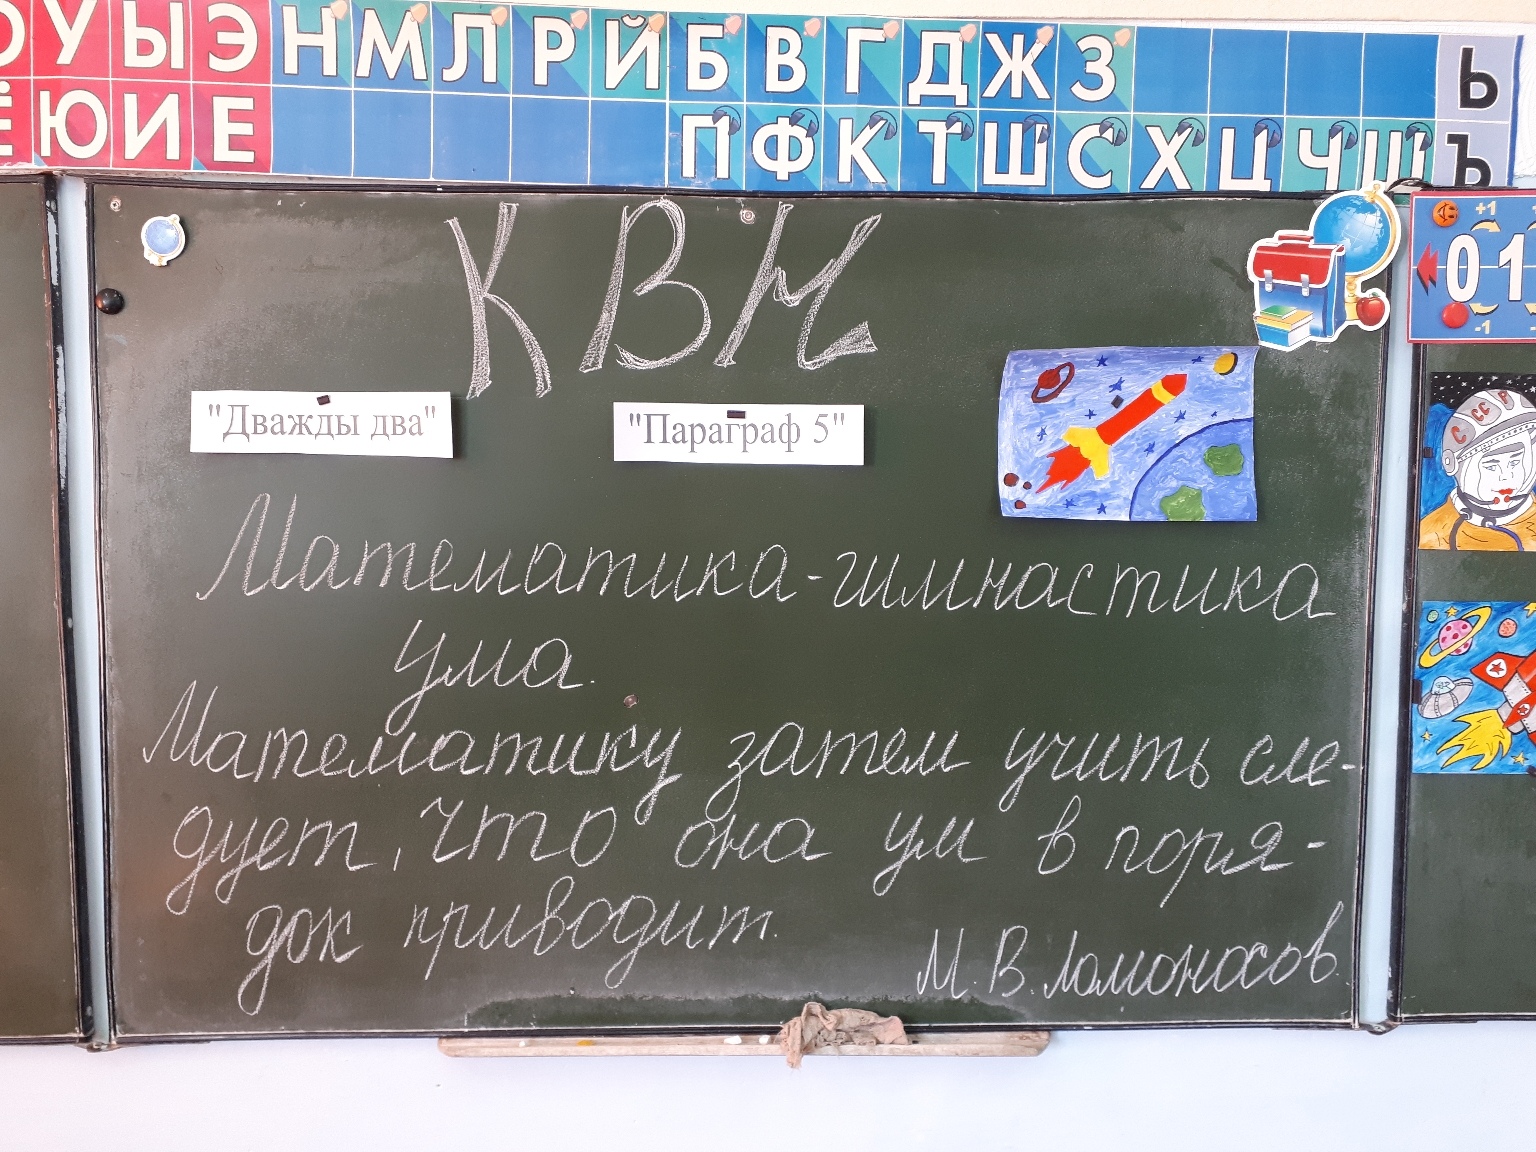 О У Ы Э Н М Л Р Й Б В Г Д Ж З Ь
Ё Ю И Е П Ф К Т Ш С Х Ц Ч Щ Ъ
+1
0 1
-1
КВН
"Дважды два" "Параграф 5"
СССР
Математика-гимнастика
ума.
Математику затем учить сле-
дует, что она ум в поря-
док приводит.
М.В. Ломоносов.